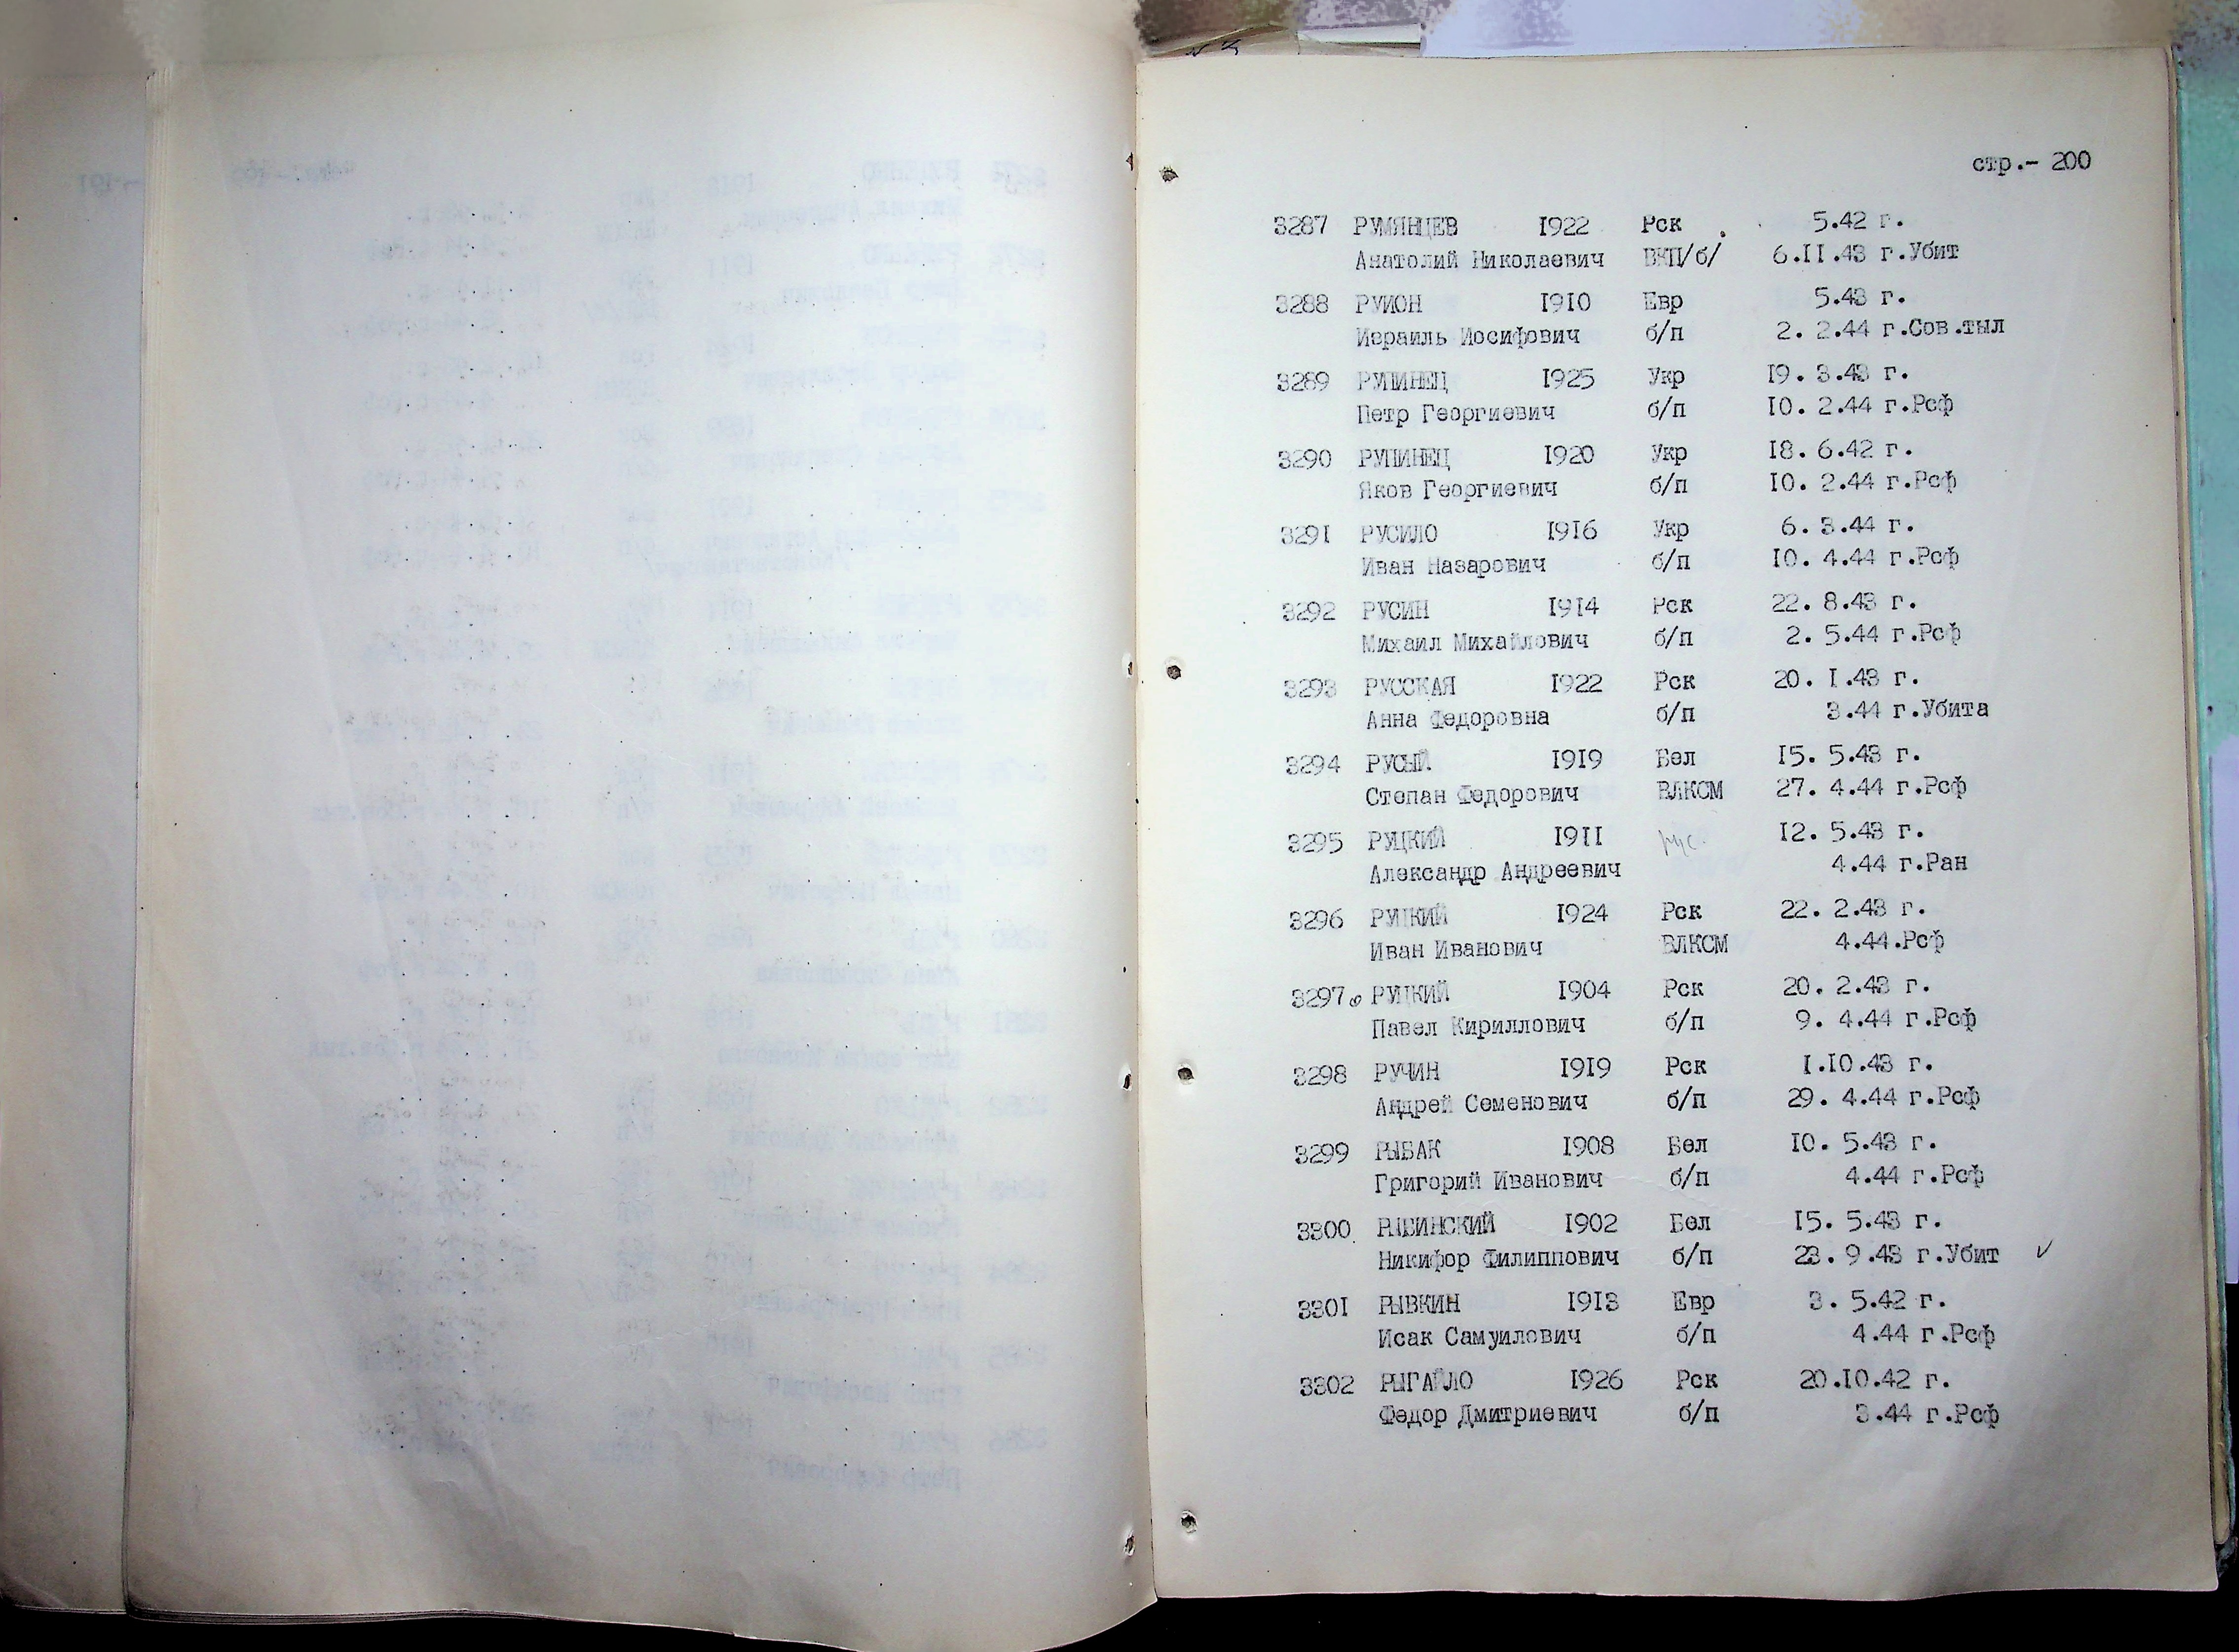 стр.- 200
3287 РУМЯНЦЕВ 1922 Рск 5.42 г.
Анатолий Николаевич ВКП/б/ 6.II.43 г.Убит
3288 РУИОН 1910 Евр 5.43 г.
Израиль Иосифович б/п 2. 2.44 г.Сов.тыл
3289 РУПИНЕЦ 1925 Укр 19. 3.43 г.
Петр Георгиевич б/п 10. 2.44 г.Рсф
3290 РУПИНЕЦ 1920 Укр 18. 6.42 г.
Яков Георгиевич б/п 10. 2.44 г.Рсф
3291 РУСИЛО 1916 Укр 6. 3.44 г.
Иван Назарович б/п 10. 4.44 г.Рсф
3292 РУСИН 1914 Рск 22. 8.43 г.
Михаил Михайлович б/п 2. 5.44 г.Рсф
3293 РУССКАЯ 1922 Рск 20. 1.43 г.
Анна Федоровна б/п 3.44 г.Убита
3294 РУСЫЙ 1919 Бел 15. 5.43 г.
Степан Федорович ВЛКСМ 27. 4.44 г.Рсф
3295 РУЦКИЙ 1911 12. 5.43 г.
Александр Андреевич 4.44 г.Ран
3296 РУЦКИЙ 1924 Рск 22. 2.43 г.
Иван Иванович ВЛКСМ 4.44.Рсф
3297 РУЦКИЙ 1904 Рск 20. 2.43 г.
Павел Кириллович б/п 9. 4.44 г.Рсф
3298 РУЧИН 1919 Рск 1.10.43 г.
Андрей Семенович б/п 29. 4.44 г.Рсф
3299 РЫБАК 1908 Бел 10. 5.43 г.
Григорий Иванович б/п 4.44 г.Рсф
3300 РЫБИНСКИЙ 1902 Бел 15. 5.43 г.
Никифор Филиппович б/п 23. 9.43 г.Убит ✓
3301 РЫВКИН 1913 Евр 3. 5.42 г.
Исак Самуилович б/п 4.44 г.Рсф
3302 РЫГАЙЛО 1926 Рск 20.10.42 г.
Федор Дмитриевич б/п 3.44 г.Рсф